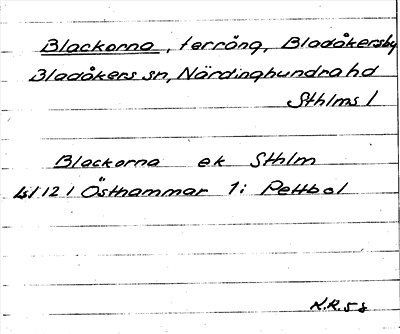 Blackorna, terräng, Bladåkersby
Bladåkers sn, Närdinghundra hd
Sthlms l
Blackorna ek Sthlm
121 Östhammar 1: Pettbol
K.R. 58